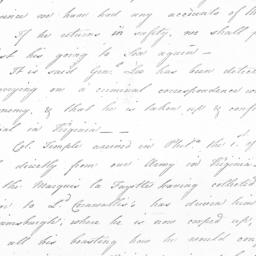 since we have had any accounts of
If he returns in safety, we shall
his going to Sea again –
It is said Gen.l Lee has been detec
carrying on a criminal correspondence w
enemy, & that he is taken up & conf
in Virginia – –
Col. Temple arrived in Phil.a the 1.st of
directly from our Army in Virginia
the Marquis la Fayette having collected
to L.d Cornwallis's has driven him
iamsburgh; where he is now cooped up,
all his boasting how he would con